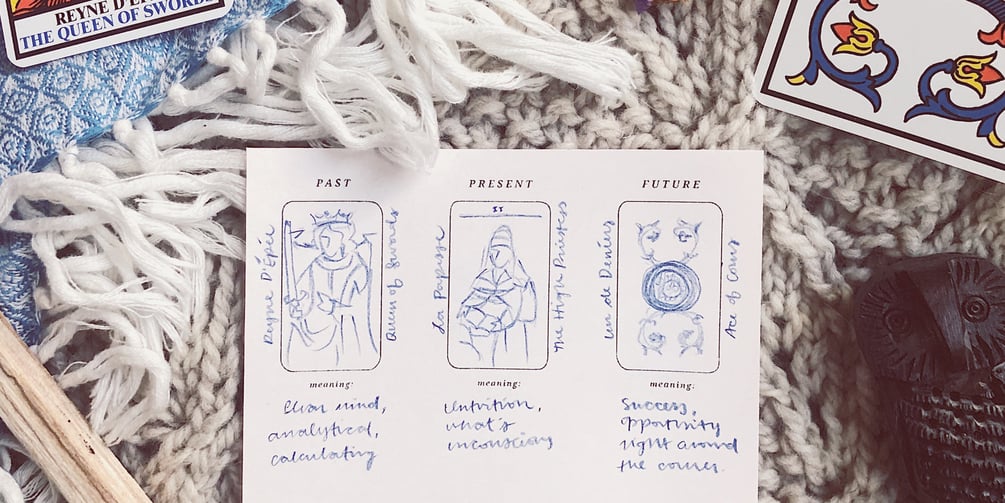 REYNE D'EP
THE QUEEN OF SWORDS
PAST
PRESENT
FUTURE
Reyne D'Épée
Queen of Swords
II
La Papesse
The High Priestess
un de Deniers
Ace of Coins
meaning:
meaning:
meaning:
Clear mind,
analytical,
calculating
intuition,
what's
inconscious
Success,
opportunity
right around
the corner.